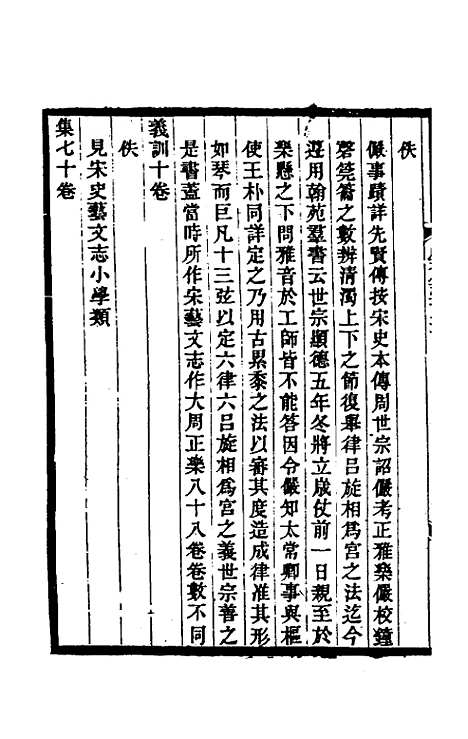 佚
儼事蹟詳先賢傳按宋史本傳周世宗詔儼考正雅樂儼校鐘
磬筦籥之數辨清濁上下之節復舉律呂旋相爲宮之法迄今
遵用翰苑羣書云世宗顯德五年冬將立歲仗前一日親至於
樂懸之下問雅音於工師皆不能答因令儼知太常卿事與樞
使王朴同詳定之乃用古累黍之法以審其度造成律准其形
如琴而巨凡十三弦以定六律六呂旋相爲宮之義世宗善之
是書蓋當時所作宋藝文志作大周正樂八十八卷卷數不同
義訓十卷
佚
見宋史藝文志小學類
集七十卷